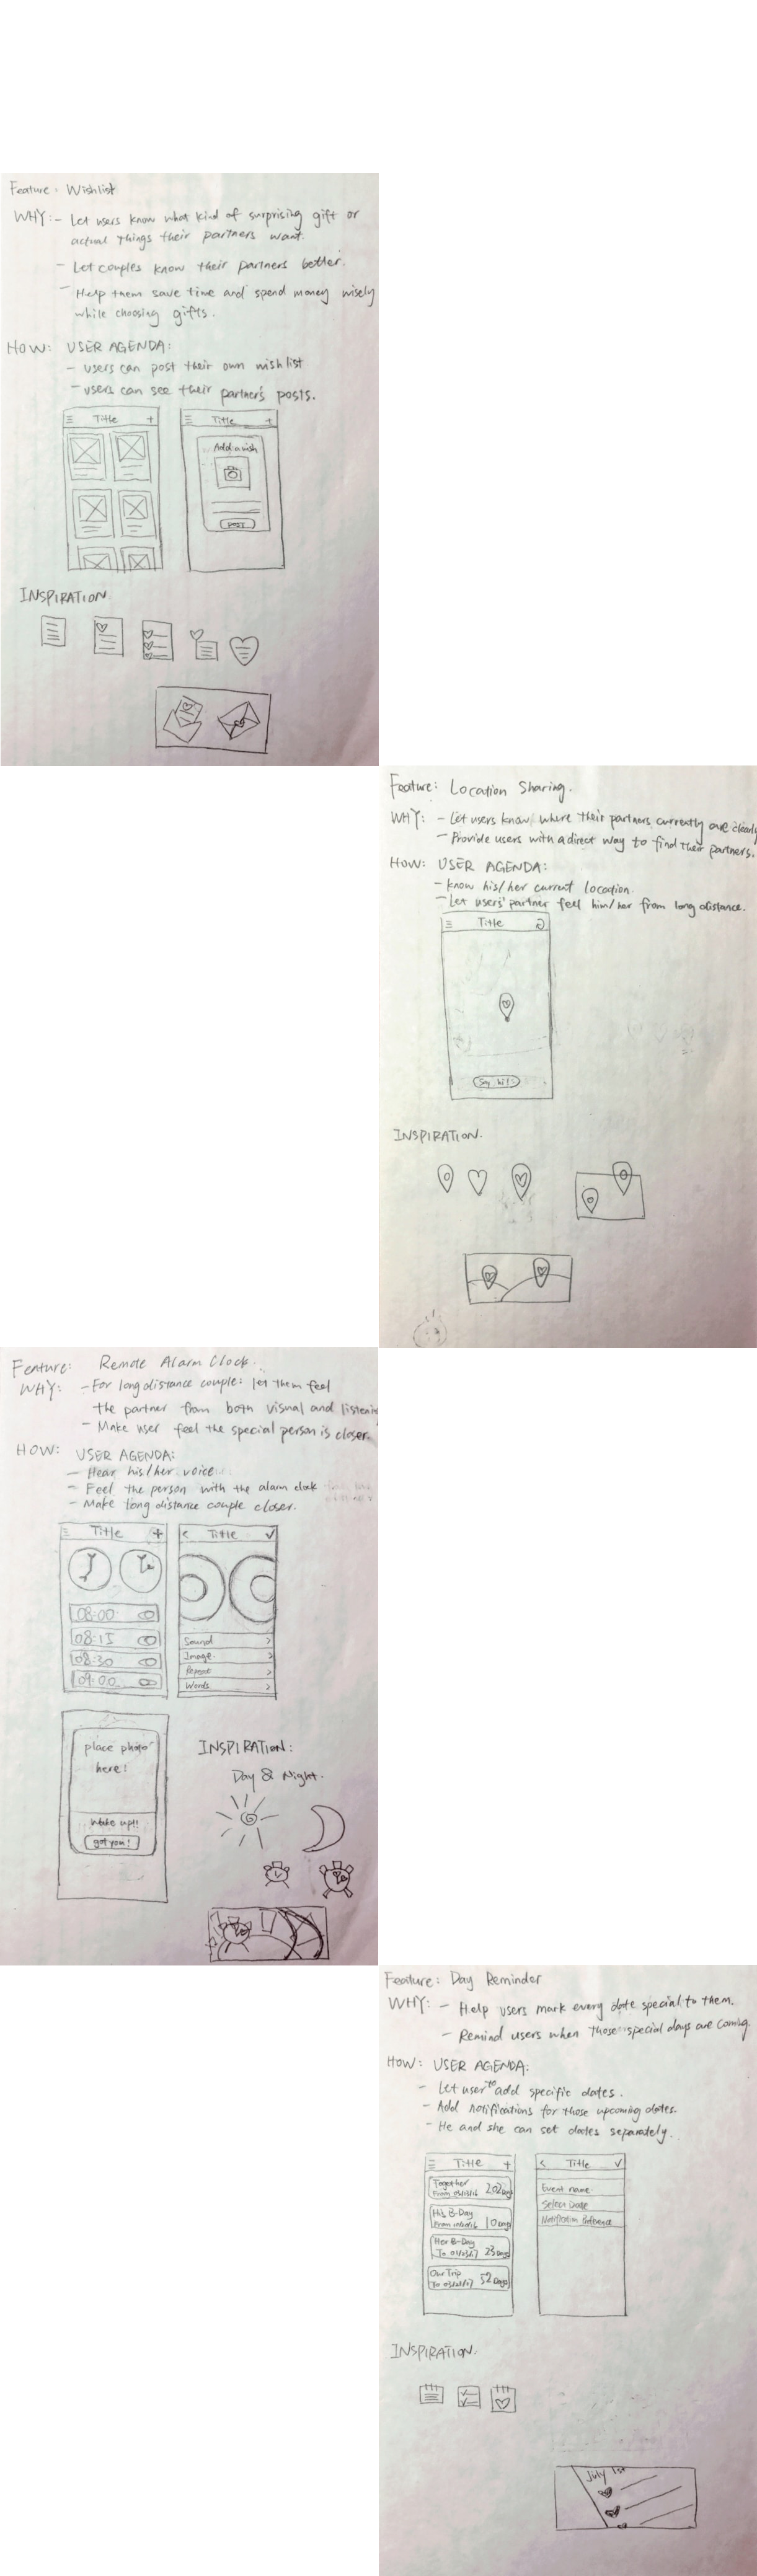 Feature: Wishlist
WHY: - Let users know what kind of surprising gift or
actual things their partners want.
- Let couples know their partners better.
- Help them save time and spend money wisely
while choosing gifts.
HOW: USER AGENDA:
- users can post their own wishlist
- users can see their partner's posts.
Title +
Title +
Add a wish
POST
INSPIRATION
Feature: Location Sharing.
WHY: - Let users know where their partners currently are clearly
- Provide users with a direct way to find their partners.
HOW: USER AGENDA:
- know his/her current location.
- Let users' partner feel him/her from long distance.
Title
Say hi!
INSPIRATION.
Feature: Remote Alarm Clock.
WHY: - For long distance couple: let them feel
the partner from both visual and listening
- Make user feel the special person is closer.
HOW: USER AGENDA:
- Hear his/her voice
- Feel the person with the alarm clock
- Make long distance couple closer.
Title +
08:00
08:15
08:30
09:00
< Title ✓
Sound >
Image >
Repeat >
Words >
place photo
here!
Wake up!!
got you!
INSPIRATION:
Day & Night.
Feature: Day Reminder
WHY: - Help users mark every date special to them.
- Remind users when those special days are coming.
HOW: USER AGENDA:
- Let user to add specific dates.
- Add notifications for those upcoming dates.
- He and she can set dates separately.
Title +
Together
From 202 Days
His B-Day
From 10 Days
Her B-Day
To 23 Days
Our Trip
To 52 Days
< Title ✓
Event name
Select Date
Notification Preference
INSPIRATION.
July 1st